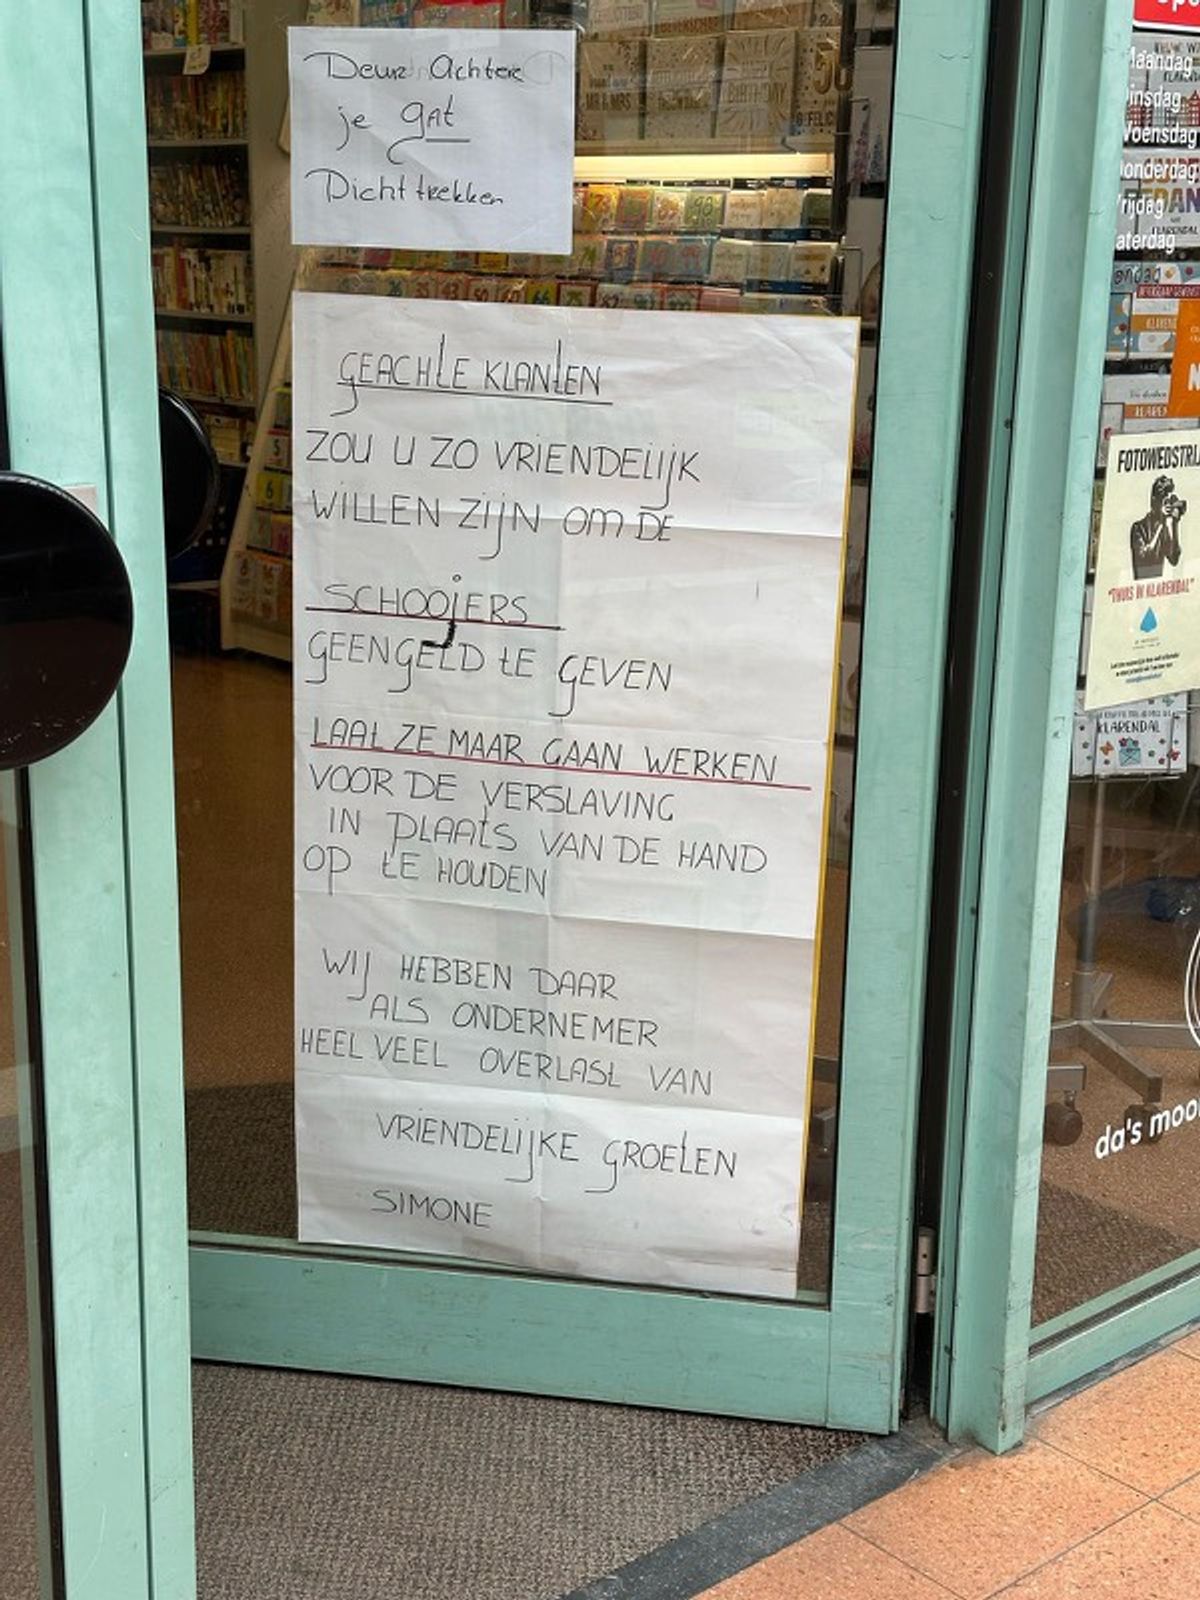 Deur Achter
je gat
Dicht trekken
GEACHTE KLANTEN
ZOU U ZO VRIENDELIJK
WILLEN ZIJN OM DE
SCHOOJERS
GEEN GELD TE GEVEN
LAAT ZE MAAR GAAN WERKEN
VOOR DE VERSLAVING
IN PLAATS VAN DE HAND
OP TE HOUDEN
WIJ HEBBEN DAAR
ALS ONDERNEMER
HEEL VEEL OVERLAST VAN
VRIENDELIJKE GROETEN
SIMONE
Maandag
Dinsdag
Woensdag
Donderdag
Vrijdag
Zaterdag
FOTOWEDSTRIJ
"THUIS IN KLARENDAL"
KLARENDAL
da's moo